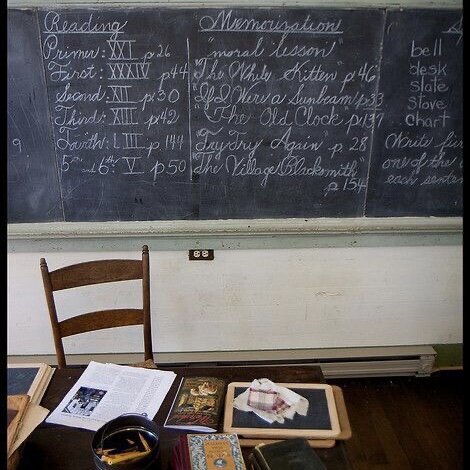 9
Reading
Primer: XXI p 26
First: XXXIV p 44
Second: XII p 30
Third: XIII p 42
Fourth: L III p. 144
5th and 6th: V p 50
Memorization
"moral lesson"
"The White Kitten" p 46
"If I Were a Sunbeam" p 33
"The Old Clock" p 137
"Try Try Again" p 28
"The Village Blacksmith"
p 154
S
bell
desk
slate
stove
chart
Write
one of the
each senten